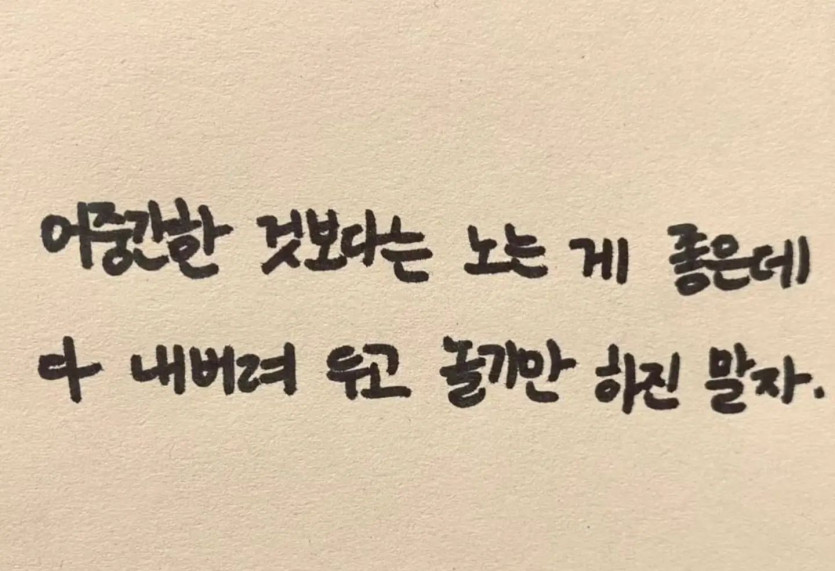 어중간한 것보다는 노는 게 좋은데
다 내버려 두고 놀기만 하진 말자.